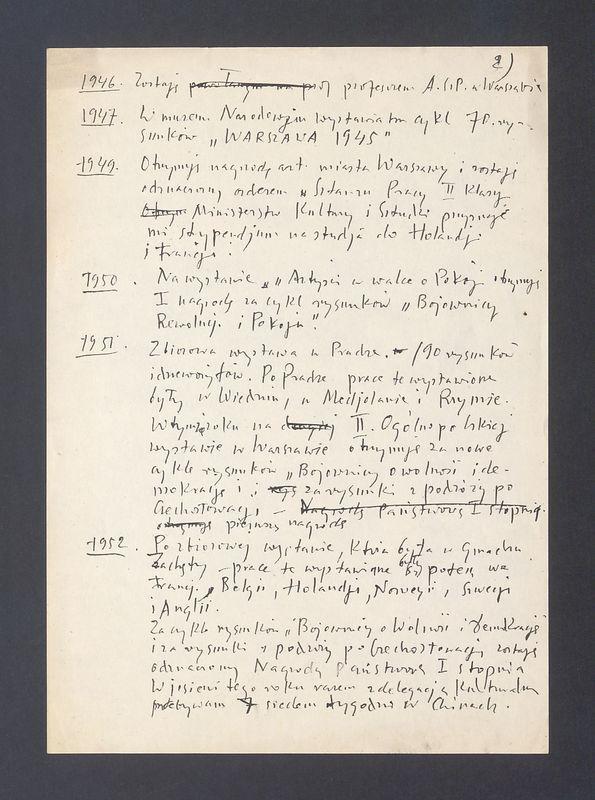 2)
1946. Zostaję powołanym na prof profesorem A.S.P. w Warszawie
1947. W muzeum Narodowym wystawiam cykl 70. ry-
sunków „WARSZAWA 1945"
1949. Otrzymuję nagrodę art. miasta Warszawy i zostaję
odznaczony orderem „Sztandaru Pracy II klasy
Ministerstwo Kultury i Sztuki przyznaje
mi stypendjum na studja do Holandji
i Francji.
1950. Na wystawie „Artyści w walce o Pokój otrzymuję
I nagrodę za cykl rysunków „Bojownicy
Rewolucji i Pokoju".
1951. Zbiorowa wystawa w Pradze. 190 rysunków
i drzeworytów. Po Pradze prace te wystawione
były w Wiedniu, w Medjolanie i Rzymie.
W tym roku na drugiej II. Ogólnopolskiej
wystawie w Warszawie otrzymuję za nowe
cykle rysunków „Bojownicy o wolność i de-
mokrację i rys za rysunki z podróży po
Czechosłowacji – Nagrodę Państwową I stopnia.
otrzymuję pierwszą nagrodę
1952. Po zbiorowej wystawie, która była w Gmachu
Zachęty – prace te wystawione były potem we
Francji, Belgii, Holandji, Norwegii, Szwecji
i Anglii.
Za cykle rysunków „Bojownicy o Wolność i Demokrację
i za rysunki z podróży po Czechosłowacji zostaję
odznaczony Nagrodą Państwową I stopnia
W jesieni tego roku razem z delegacją Kulturalną
przebywam 7 siedem tygodni w Chinach.